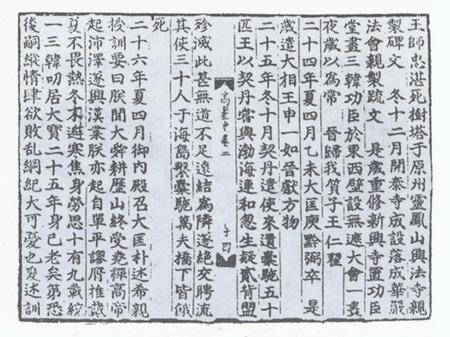 王師忠湛死樹塔于原州靈鳳山興法寺親
製碑文 冬十二月開泰寺成設落成華嚴
法會親製疏文 是歲重修新興寺置功臣
堂畫三韓功臣於東西壁設無遮大會一晝
夜歲以爲常 晉歸我質子王仁翟
二十四年夏四月乙未大匡庾黔弼卒 是
歲遣大相王申一如晉獻方物
二十五年冬十月契丹遣使來遺橐駝五十
匹王以契丹嘗與渤海連和忽生疑貳背盟
高麗史卷二 十四
殄滅此甚無道不足遠結爲隣遂絶交聘流
其使三十人于海島繫橐駝萬夫橋下皆餓
死
二十六年夏四月御內殿召大匡朴述希親
授訓要曰朕聞大舜耕歷山終受堯禪高帝
起沛澤遂興漢業朕亦起自單平謬膺推戴
夏不畏熱冬不避寒焦身勞思十有九載統
一三韓叨居大寶二十五年身已老矣第恐
後嗣縱情肆欲敗亂綱紀大可憂也爰述訓